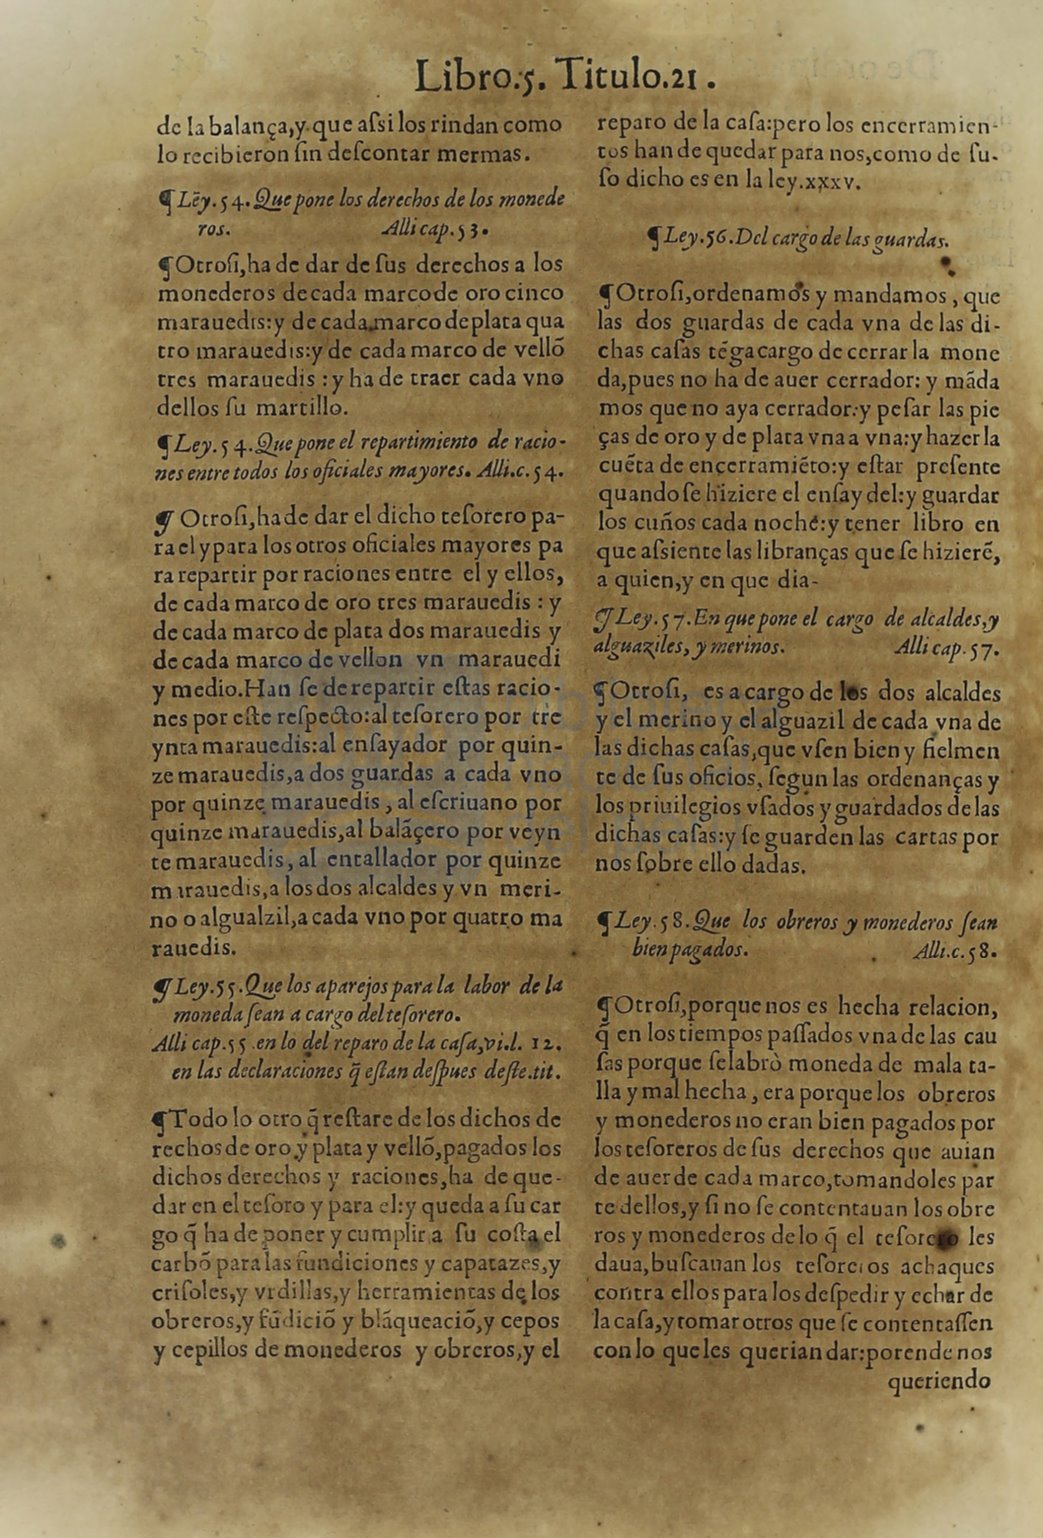 Libro.5. Titulo.21.
de la balança,y que aſsi los rindan como
lo recibieron ſin deſcontar mermas.
¶ Lēy.54. Que pone los derechos de los monede
ros. Alli cap.53.
¶Otroſi,ha de dar de ſus derechos a los
monederos de cada marco de oro cinco
marauedis:y de cada marco de plata qua
tro marauedis:y de cada marco de vellõ
tres marauedis : y ha de traer cada vno
dellos ſu martillo.
¶Ley.54.Que pone el repartimiento de racio-
nes entre todos los oficiales mayores. Alli.c.54.
¶ Otroſi,ha de dar el dicho teſorero pa-
ra el y para los otros oficiales mayores pa
ra repartir por raciones entre el y ellos,
de cada marco de oro tres marauedis : y
de cada marco de plata dos marauedis y
de cada marco de vellon vn marauedi
y medio.Han ſe de repartir eſtas racio-
nes por eſte reſpecto:al teſorero por tre
ynta marauedis:al enſayador por quin-
ze marauedis,a dos guardas a cada vno
por quinze marauedis , al eſcriuano por
quinze marauedis,al balãçero por veyn
te marauedis, al entallador por quinze
marauedis,a los dos alcaldes y vn meri-
no o algualzil,a cada vno por quatro ma
rauedis.
¶Ley.55.Que los aparejos para la labor de la
moneda ſean a cargo del teſorero.
Alli cap.55 .en lo del reparo de la caſa,vi.l. 12.
en las declaraciones q̃ eſtan deſpues deſte.tit.
¶Todo lo otro q̃ reſtare de los dichos de
rechos de oro y plata y vellõ,pagados los
dichos derechos y raciones,ha de que-
dar en el teſoro y para el:y queda a ſu car
go q̃ ha de poner y cumplir a ſu coſta el
carbõ para las fundiciones y capatazes,y
criſoles,y vrdillas,y herramientas de los
obreros,y fũdiciõ y blãqueaciõ,y cepos
y cepillos de monederos y obreros,y el
reparo de la caſa:pero los encerramien-
tos han de quedar para nos,como de ſu-
ſo dicho es en la ley.xxxv.
¶Ley.56.Del cargo de las guardas.
¶Otroſi,ordenamos y mandamos , que
las dos guardas de cada vna de las di-
chas caſas tẽga cargo de cerrar la mone
da,pues no ha de auer cerrador: y mãda
mos que no aya cerrador:y peſar las pie
ças de oro y de plata vna a vna:y hazer la
cuẽta de encerramiẽto:y eſtar preſente
quando ſe hiziere el enſay del:y guardar
los cuños cada noche:y tener libro en
que aſsiente las libranças que ſe hizierẽ,
a quien,y en que dia-
¶Ley.57.En que pone el cargo de alcaldes,y
alguaziles, y merinos. Alli cap.57.
¶Otroſi, es a cargo de los dos alcaldes
y el merino y el alguazil de cada vna de
las dichas caſas,que vſen bien y fielmen
te de ſus oficios, ſegun las ordenanças y
los priuilegios vſados y guardados de las
dichas caſas:y ſe guarden las cartas por
nos ſobre ello dadas.
¶Ley.58.Que los obreros y monederos ſean
bien pagados. Alli.c.58.
¶Otroſi,porque nos es hecha relacion,
q̃ en los tiempos paſſados vna de las cau
ſas porque ſe labrò moneda de mala ta-
lla y mal hecha , era porque los obreros
y monederos no eran bien pagados por
los teſoreros de ſus derechos que auian
de auer de cada marco,tomandoles par
te dellos,y ſi no ſe contentauan los obre
ros y monederos de lo q̃ el teſorero les
daua,buſcauan los teſoreros achaques
contra ellos para los deſpedir y echar de
la caſa,y tomar otros que ſe contentaſſen
con lo que les querian dar:porende nos
queriendo